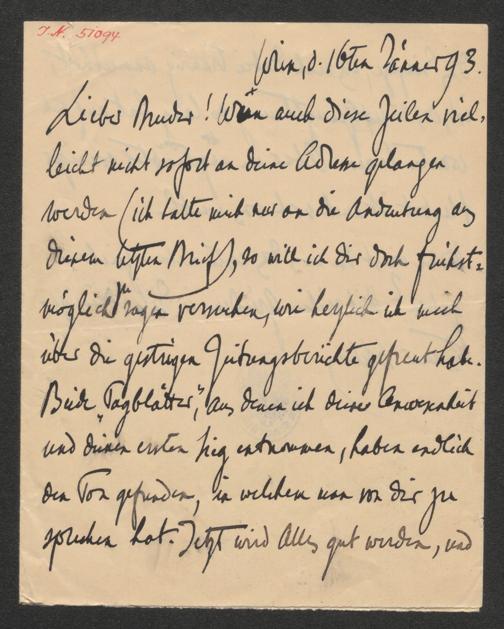 I.N. 51094
Wien, d. 16ten Jänner 93.
Lieber Bruder! Wenn auch diese Zeilen viel-
leicht nicht sofort an deine Adresse gelangen
werden (ich halte mich nur an die Andeutung aus
deinem letzten Brief), so will ich dir doch frühst-
möglich zu sagen versuchen, wie herzlich ich mich
über die gestrigen Zeitungsberichte gefreut habe.
Beide „Tagblätter“, aus denen ich deine Anwesenheit
und deinen ersten Sieg entnommen, haben endlich
den Ton gefunden, in welchem man von dir zu
sprechen hat. Jetzt wird Alles gut werden, und